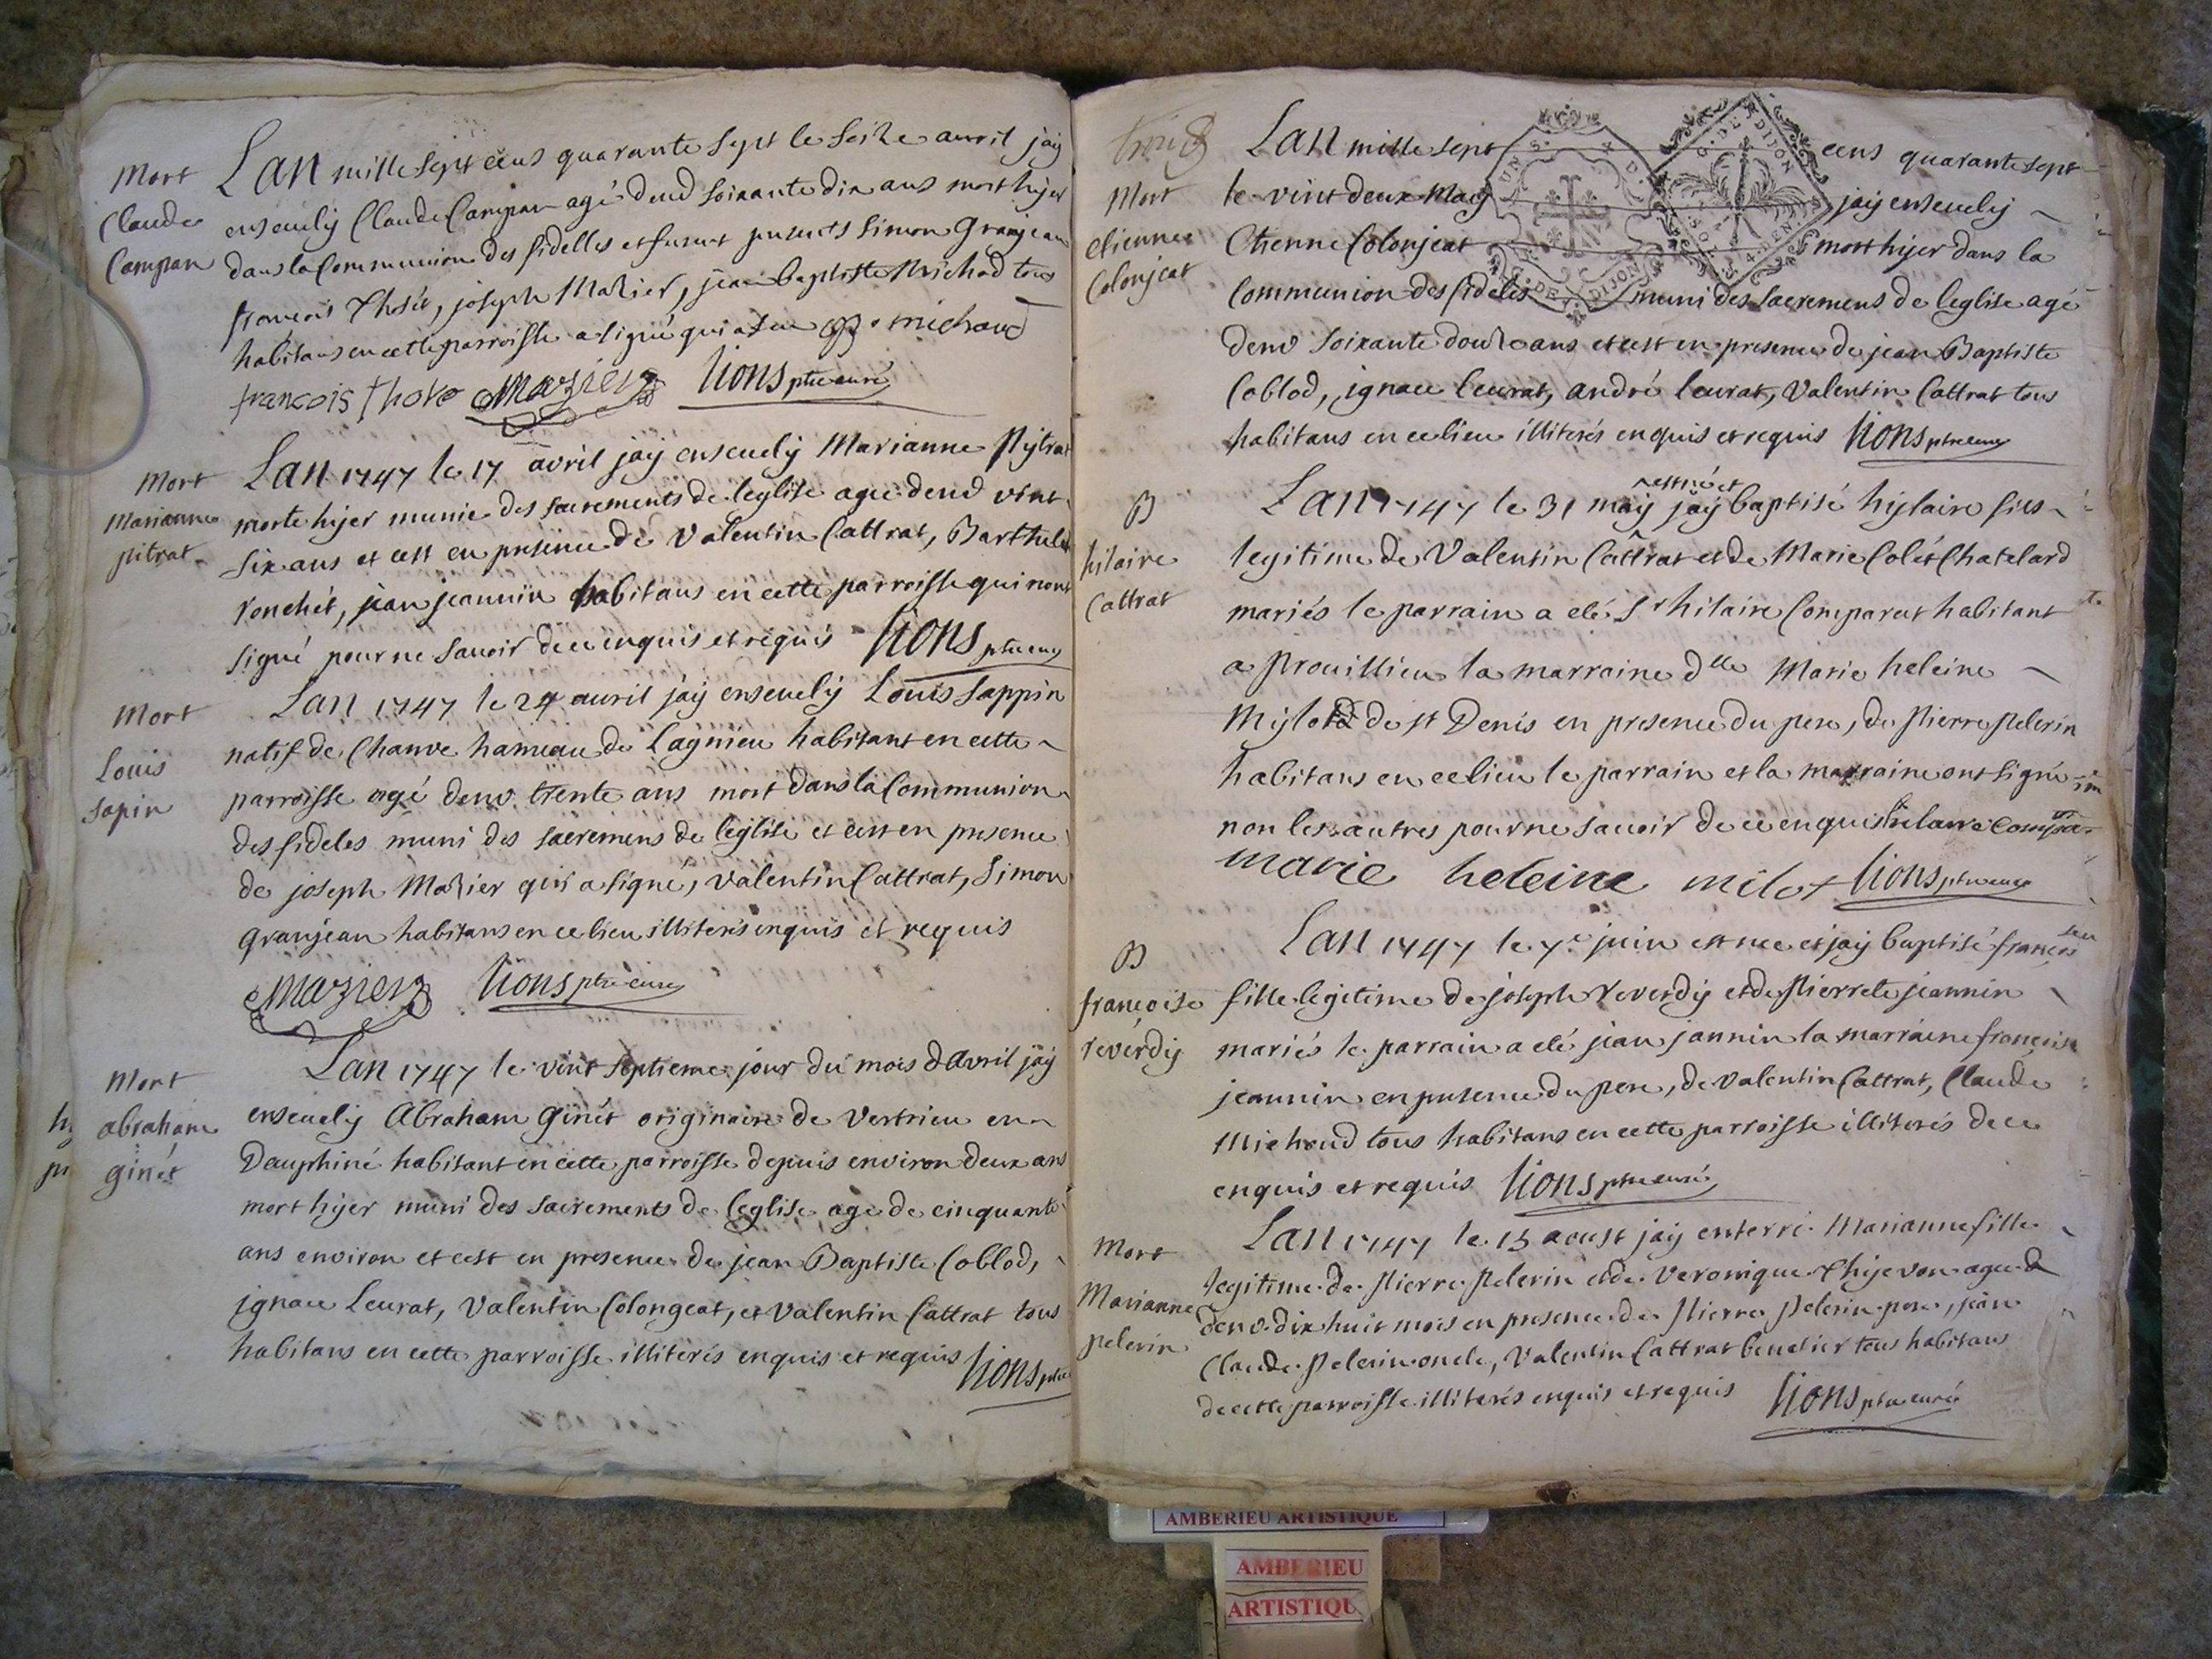 Mort
Claude
Campan
Lan mille sept cens quarante sept le seize avril jaÿ
enseuelÿ Claude Campan agé denv soixante dix ans mort hÿer
dans la Communion des fidelles et furent presents Simon Granjean
francois Thosét, joseph Mazier, jean baptiste Michod tous
habitans en cette parroisse a signé qui a sceu michaud
francois thove Mazierz Lions ptre curé
Mort
Marianne
pitrat
Lan 1747 le 17 avril jaÿ enseuelÿ Marianne Pÿtrat
morte hÿer munie des sacrements de leglise agée denv vint
six ans et cest en presence de Valentin Cattrat, Barthele
ronchét, jean jeannin habitans en cette parroisse qui nont
signé pour ne sauoir de ce enquis et requis Lions ptre curé
Mort
Louis
Sapin
Lan 1747 le 24 auril jaÿ enseuelÿ Louis Sappin
natif de Chanve hameau de Lagnieu habitant en cette
parroisse agé denv. trente ans mort dans la Communion
des fideles muni des sacremens de leglise et cest en presence
de joseph Mazier qui a signé, Valentin Cattrat, Simon
Granjean habitans en ce lieu illiterés enquis et requis
Mazierz Lions ptre curé
Mort
abraham
ginét
Lan 1747 le vint septieme jour du mois davril jaÿ
enseuelÿ Abraham Ginét originaire de Vertrieu en
Dauphiné habitant en cette parroisse depuis environ deux ans
mort hÿer muni des sacrements de leglise agé de cinquante
ans environ et cest en presence de jean Baptiste Coblod,
jgnace Leurat, Valentin Colongeat, et Valentin Cattrat tous
habitans en cette parroisse illiterés enquis et requis Lions ptre
Mort
etienne
Colonjeat
Lan mille sept cens quarante sept
le vint deux Maÿ jaÿ enseuelÿ
Etienne Colonjeat mort hÿer dans la
Communion des fideles muni des sacremens de leglise agé
denv soixante douze ans et cest en presence de jean Baptiste
Coblod, jgnace leurat, andré leurat, Valentin Cattrat tous
habitans en ce lieu illiterés enquis et requis Lions ptre curé
B
hilaire
Cattrat
Lan 1747 le 31 maÿ est né et jaÿ baptisé hÿlaire fils
legitime de Valentin Cattrat et de Marie Colét Chatelard
mariés le parrain a eté Sr hilaire Comparat habitant
a Proüillieu la marraine dlle Marie heleine
Mÿlord de st Denis en presence du pere, de Pierre Pelerin
habitans en ce lieu le parrain et la marraine ont signé
non les autres pour ne sauoir de ce enquis hilaire Compa
marie heleine milot Lions ptre curé
B
françoise
reverdÿ
Lan 1747 le 7e juin est née et jaÿ baptisé françoise
fille legitime de joseph Reverdÿ et de Pierrete jeannin
mariés le parrain a eté jean jannin la marraine françoise
jeannin en presence du pere, de Valentin Cattrat, Claude
Michoud tous habitans en cette parroisse illiterés de ce
enquis et requis Lions ptre curé
Mort
Marianne
pelerin
Lan 1747 le 15 aoust jaÿ enterré Marianne fille
legitime de Pierre Pelerin et de Veronique Thÿevon agée
denv. dix huit mois en presence de Pierre Pelerin pere, jean
Claude Pelerin oncle, Valentin Cattrat benetier tous habitans
de cette parroisse illiterés enquis et requis Lions ptre curé
AMBERIEU ARTISTIQUE
AMBERIEU
ARTISTIQU